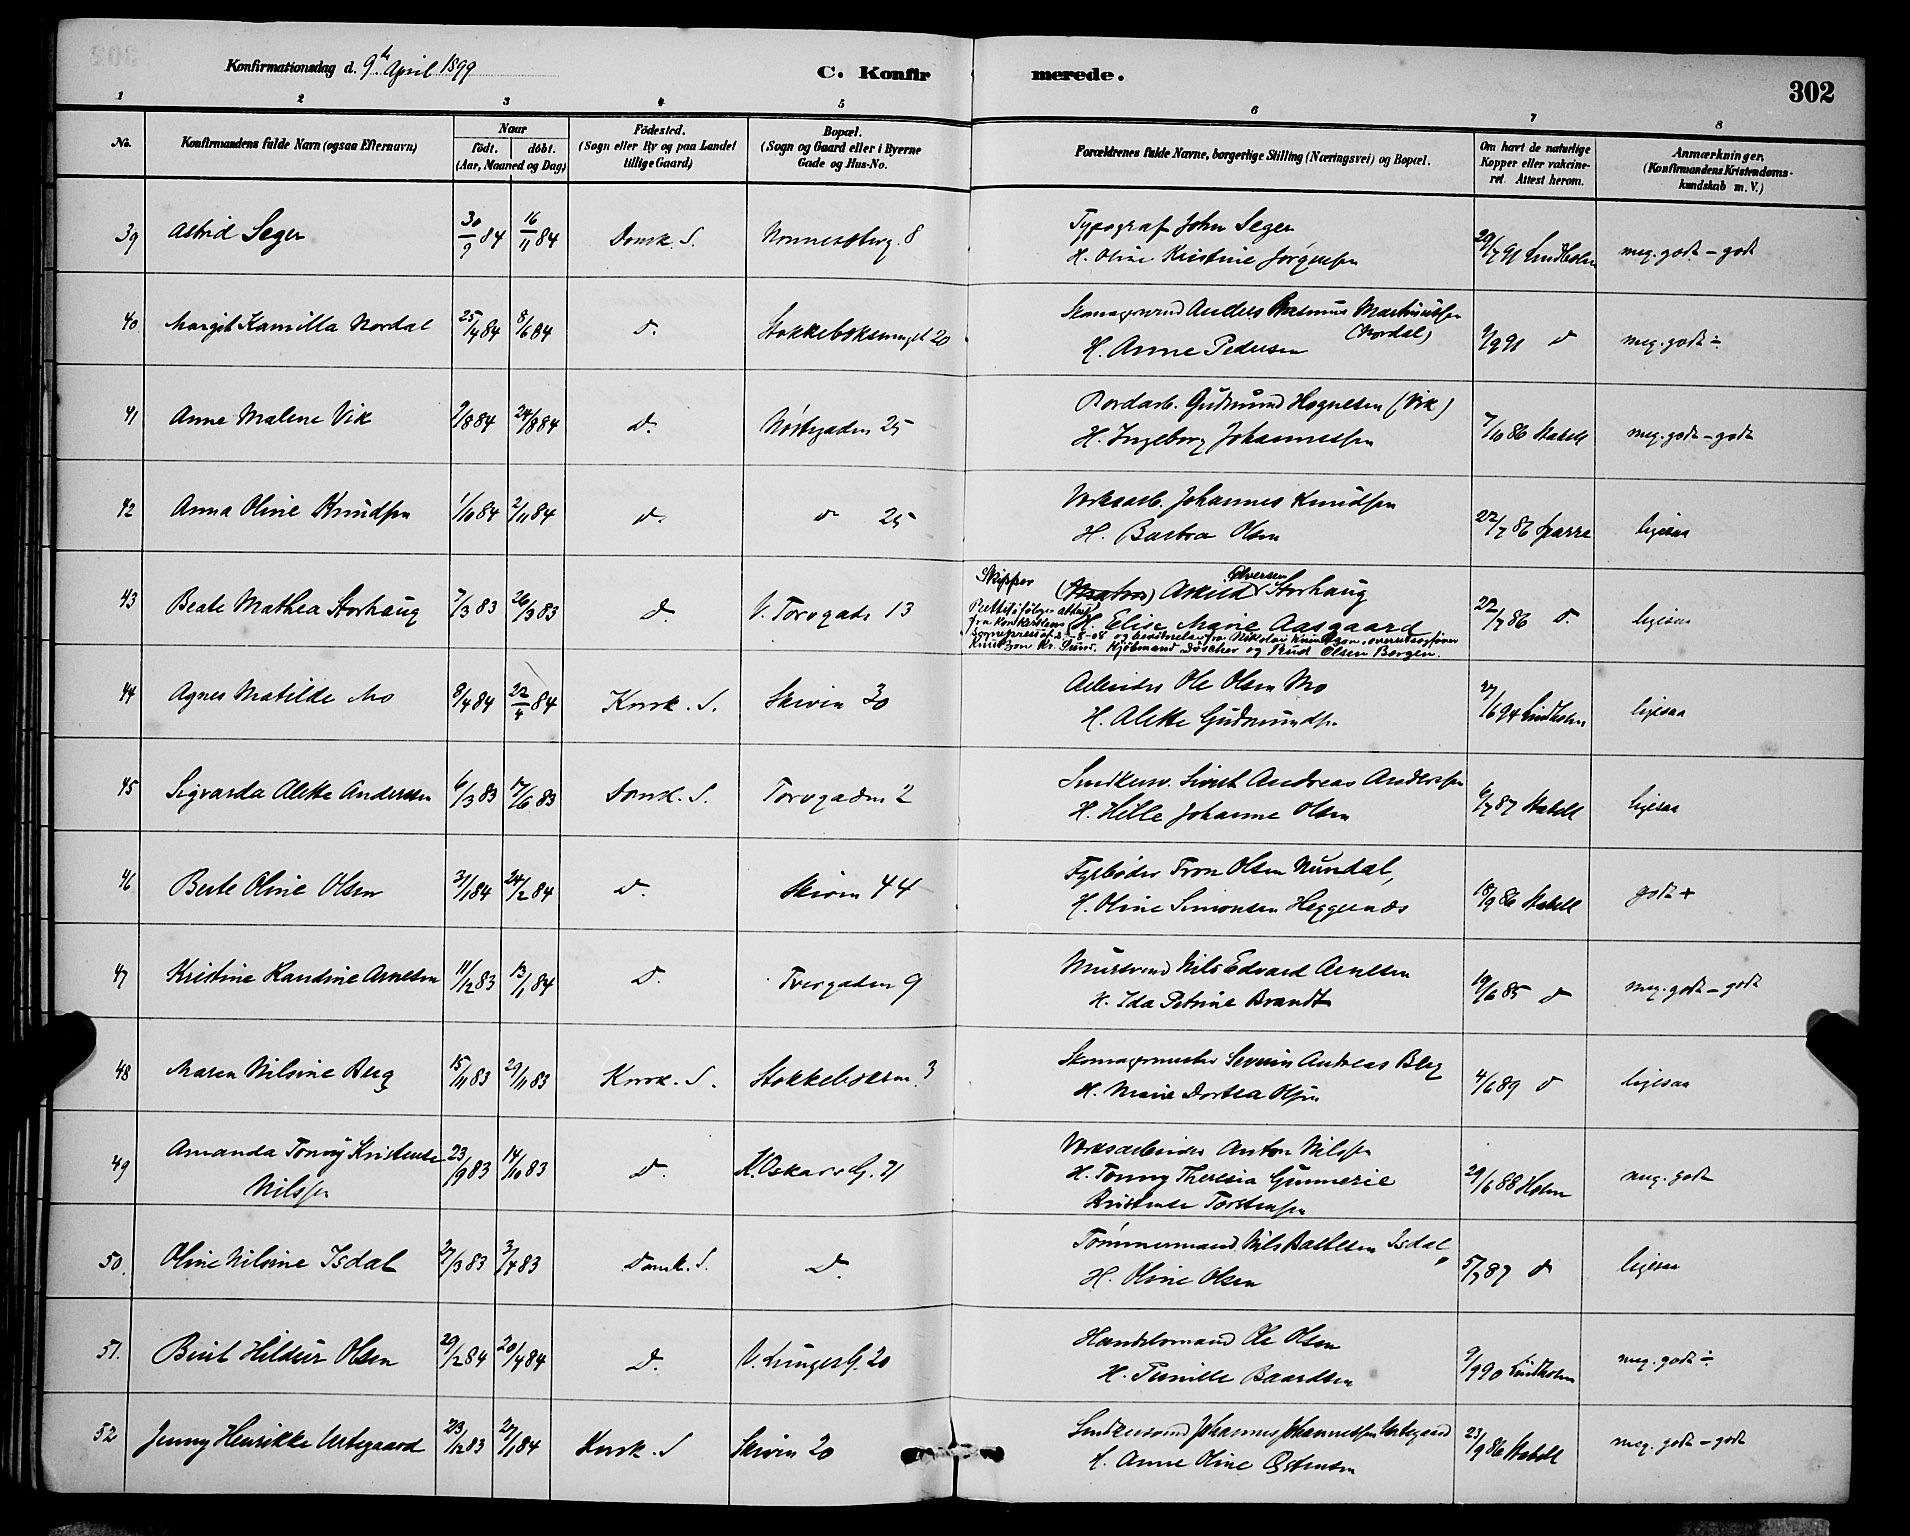 Konfirmationsdag d. 9de April 1899
C. Konfirmerede.
302
1 2 3 4 5 6 7 8
No.
Konfirmandens fulde Navn (ogsaa Efternavn)
Naar
födt. döbt.
(Aar, Maaned og Dag)
Födested.
(Sogn eller By og paa Landet
tillige Gaard)
Bopæl.
(Sogn og Gaard eller i Byerne
Gade og Hus-No.
Forældrenes fulde Navne, borgerlige Stilling (Næringsvei) og Bopæl.
Om havt de naturlige
Kopper eller vakcine-
ret. Attest herom.
Anmærkninger.
(Konfirmandens Kristendoms-
kundskab m. V.)
39 Astrid Seger 30/9 84 16/11 84 Domk. S. Nonnesbterg. 8 Typograf John Seger 29/7 91 Lindholm meg. godt - godt
H. Oline Kristine Jørgensen
40 Margit Kamilla Nordal 25/4 84 8/6 84 d. Stokkeboksmuget 20 Skomagersvend Anders Rasmus Martinussen
(Nordal) 9/9 91 d meg. godt ÷
H. Anne Pedersen
41 Anna Malene Vik 2/8 84 24/8 84 d. Nöstegaden 25 Bordarb. Gudmund Hognesen (Vik) 7/10 86 Stabell meg. godt - godt
H. Ingeborg Johannessen
42 Anna Oline Knudsen 1/10 84 2/11 84 d. d 25 Verksarb. Johannes Knudsen 22/7 86 Sparre ligesaa
H. Barbra Olsen
43 Beate Mathea Storhaug 7/3 83 26/3 83 d. V. Torvgade 13 Skipper (Matros) Askild Siversen Storhaug 22/7 86 d. ligesaa
Rettet ifölge attest
fra Korskirkens H. Elise Marie Aasgaard
Sognepræst af 2-8-08 og bevitnelse fra Nikolai Knudtzon, overretssagfører
Knudtzon Kr. Sund, Kjöbmand Döscher og Knud Olsen Bergen.
44 Agnes Matilde Mo 8/4 84 22/4 84 Kork. S. Skiven 30 Arbeider Ole Olsen Mo 27/6 94 Lindholm ligesaa
H. Alette Gudmundsen
45 Sigvarda Alette Andersen 6/3 83 17/6 83 Domk. S. Torvgaden 2 Snedkersv. Sivert Andreas Anderssen 6/7 87 Stabell ligesaa
H. Hille Johanne Olsen
46 Berte Oline Olsen 3/1 84 24/2 84 d. Skiven 44 Fyrböder Tron Olsen Nundal, 18/9 86 Stabell godt +
H. Oline Simonsen Heggernæs
47 Kristine Randine Arnesen 11/12 83 13/1 84 d. Tvergaden 9 Mursvend Nils Edvard Arnesen 19/6 85 d meg. godt - godt
H. Ida Petrine Brandt
48 Maren Nilsine Berg 15/11 83 29/11 83 Kork. S. Stokkeboksm. 3 Skomagermester Severin Andreas Berg 4/6 89 d ligesaa
H. Marie Dortea Olsen
49 Amanda Tonny Kristense 23/9 83 14/10 83 d. K. Oskars G. 71 Verksarbeider Anton Nilssen 29/6 88 Holm meg. godt
Nilssen H. Tonny Theresia Gunnerie
Kristense Torstensen
50. Oline Nilsine Isdal 27/3 83 3/4 83 Domk. S. d. Tømmermand Nils Baltsen Isdal 5/7 87 d ligesaa
H. Oline Olsen
51. Birit Hildur Olsen 29/2 84 20/4 84 d. V. Lungeg. 20 Handelsmand Ole Olsen 9/9 90 Lindholm meg. godt ÷
H. Pernille Baardsen
52 Jenny Henrikke Urtegaard 23/12 83 27/1 84 Kork. S Skiven 20 Snedkersvend Johannes Johannessen Urtegaard 23/9 86 Stabell meg. godt - godt
H. Anne Oline Östensen